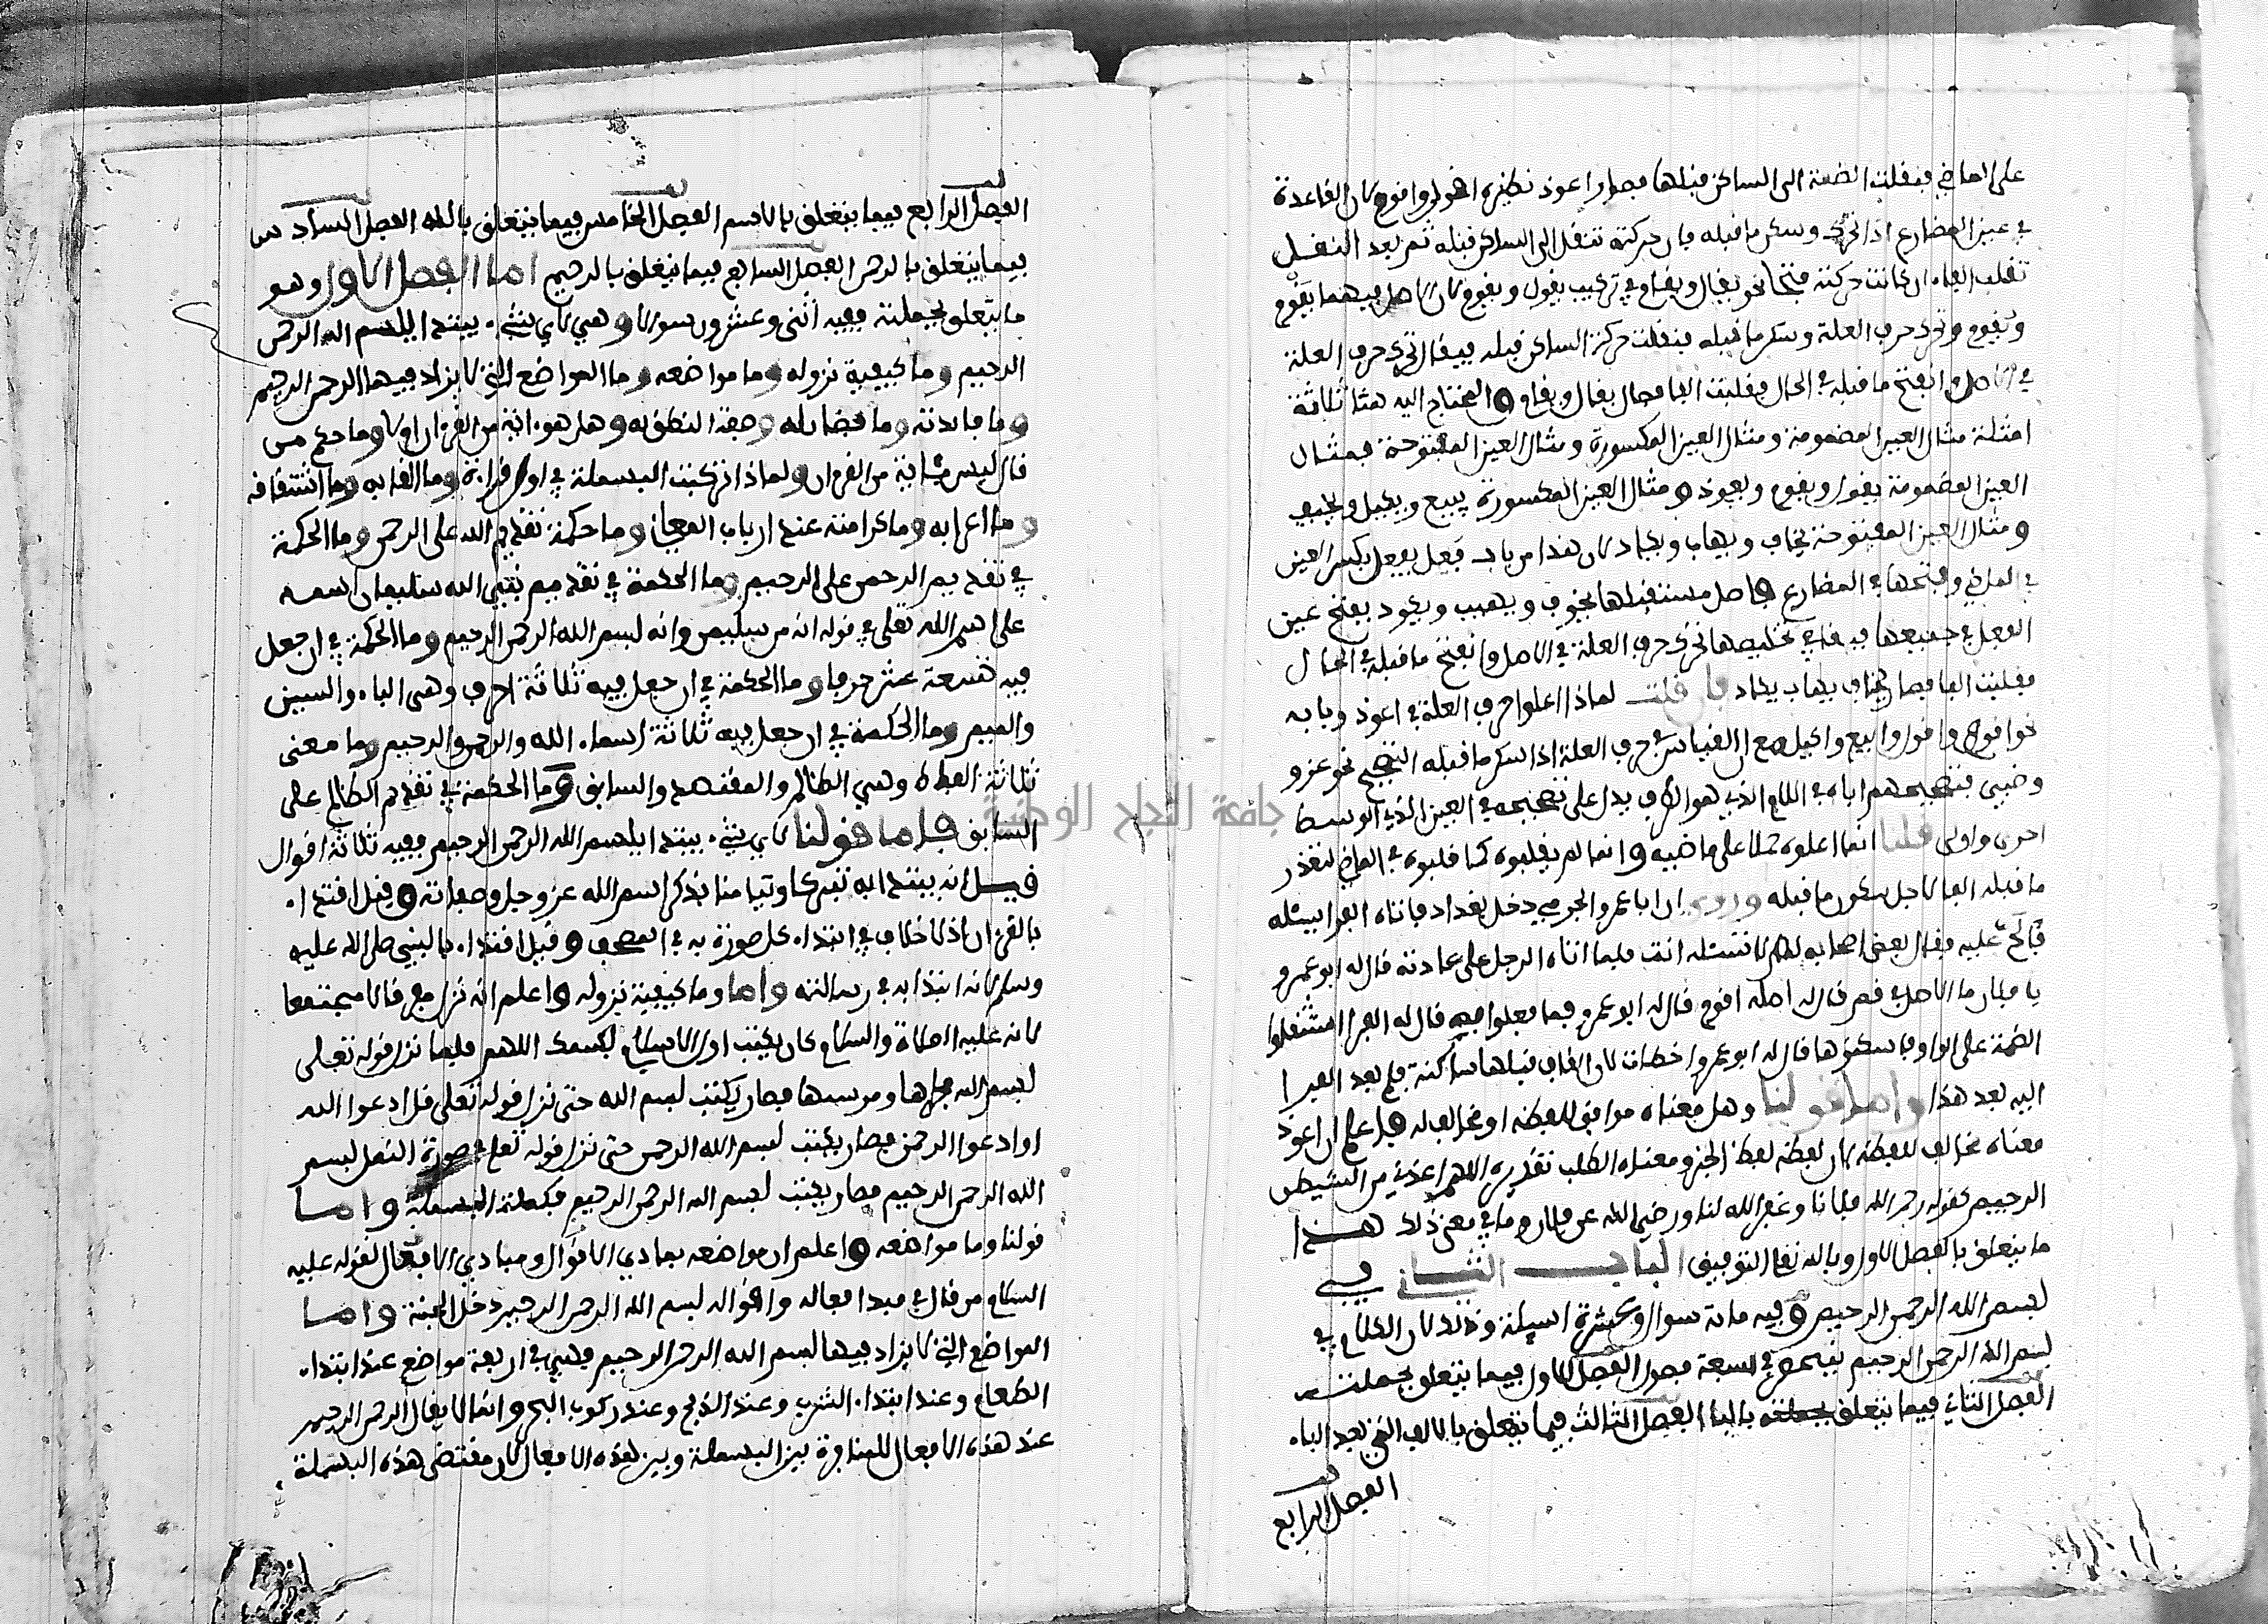 على الماضي فنقلت الضمة الى الساكن قبلها فصار اعوذ نظيره اقول واقوم لان القاعدة
في عين المضارع اذا تحرك وسكن ما قبله فان حركته تنقل الى الساكن قبله ثم بعد النقل
تقلب الفاء ان كانت حركته فتحا نحو يقال ويقام في تركيب يقول ويقوم لان الاصل فيهما يقوم
ويقوم وتحرك حرف العلة وسكن ما قبله فنقلت حركة الساكن قبله فيقال تحرك حرف العلة
في الاصل وانفتح ما قبله في الحال فقلبت الفا فصار يقال ويقام والمحتاج اليه هنا ثلاثة
امثلة مثال العين المضمومة ومثال العين المكسورة ومثال العين المفتوحة فمثال
العين المضمومة يقول ويقوم ويعوذ ومثال العين المكسورة يبيع ويكيل
ومثال العين المفتوحة يخاف ويهاب ويكاد لان هذا من باب فعل يفعل بكسر العين
في الماضي وفتحها في المضارع واصل مستقبلها يخوف ويهيب ويكود بفتح عين
الفعل في جميعها فتحرك حرف العلة في الاصل وانفتح ما قبله في الحال
فقلبت الفا فصار يخاف يهاب يكاد فان قلت لماذا اعلوا حرف العلة في اعوذ وبابه
نحو اقوم واقول وابيع واكيل مع ان القياس في حرف العلة اذا سكن ما قبله التصحيح نحو غزو
وضبي فتصحيحهم اياه في اللام الذي هو الطرف يدل على تصحيحه في العين الذي الوسط
احرى واولى قلنا انما اعلوه حملا على ماضيه وانما لم يقلبوه كما قلبوه في الماضي لتعذر
ما قبله الفا لاجل سكون ما قبله وروي ان ابا عمرو الجرمي دخل بغداد فاتاه الفرا يسئله
فالح عليه فقال بعض اصحابه لم لا تسئله انت فلما اتاه الرجل على عادته قال له ابو عمرو
يا فلان ما الاصل في قم قال له اصله اقوم قال له ابو عمرو فما فعلوا فيه قال له الفرا استثقلوا
الضمة على الواو فاسكنوها قال له ابو عمرو اخطات لان القاف قبلها ساكنة فلم يعد الفرا
اليه بعد هذا واما قولنا وهل معناه موافق للفظه او مخالف له فاعلم ان اعوذ
معناه مخالف للفظه لان لفظه لفظ الخبر ومعناه الطلب تقديره اللهم اعذني من الشيطن
الرجيم كقوله رحم الله فلانا وغفر الله لنا ورضي الله عن فلان وما في معنى ذلك هذا
ما يتعلق بالفصل الاول وبالله تعلى التوفيق الباب الثاني في
بسم الله الرحمن الرحيم وفيه مائة سوال وعشرة اسئلة وذلك ان الكلام في
بسم الله الرحمن الرحيم ينحصر في سبعة فصول الفصل الاول فيما يتعلق بجملته
الفصل الثاني فيما يتعلق بالباء الفصل الثالث فيما يتعلق بالالف التي بعد الباء
الفصل الرابع
الفصل الرابع فيما يتعلق بالاسم الفصل الخامس فيما يتعلق بالله الفصل السادس
فيما يتعلق بالرحمن الفصل السابع فيما يتعلق بالرحيم اما الفصل الاول وهو
ما يتعلق بجملته ففيه اثنى وعشرون سوالا وهي لاي شيء يبتدا ببسم الله الرحمن
الرحيم وما كيفية نزوله وما مواضعه وما المواضع التي لا يزاد فيها الرحمن الرحيم
وما فائدته وما فضائله وصفة النطق به وهل هو اية من القرءان اولا وما حجة من
قال ليس باية من القرءان ولماذا تركت البسملة في اول براءة وما القابه وما اشتقاقه
وما اعرابه وما كرامته عند ارباب المعاني وما حكمة تقديم الله على الرحمن وما الحكمة
في تقديم الرحمن على الرحيم وما الحكمة في تقديم نبي الله سليمان اسمه
على اسم الله تعلى في قوله انه من سليمن وانه بسم الله الرحمن الرحيم وما الحكمة في ان جعل
فيه تسعة عشر حرفا وما الحكمة في ان جعل فيه ثلاثة احرف وهي الباء والسين
والميم وما الحكمة في ان جعل فيه ثلاثة اسماء الله والرحمن والرحيم وما معنى
ثلاثة الفظاه وهي الظالم والمقتصد والسابق وما الحكمة في تقديم الظالم على
السابق فاما قولنا لاي شيء يبتدا ببسم الله الرحمن الرحيم ففيه ثلاثة اقوال
قيل انه يبتدا به تبركا وتيامنا بذكر اسم الله عز وجل وصفاته وقيل اقتداء
بالقرءان اذ لا خلاف في ابتداء كل صورة به في المصحف وقيل اقتداء بالنبي صلى الله عليه
وسلم لانه ابتدا به في رسالته واما وما كيفية نزوله واعلم انه نزل مفرقا لا مجتمعا
لانه عليه الصلاة والسلام كان يكتب اول الاسلام بسمك اللهم فلما نزل قوله تعلى
بسم الله مجراها ومرسها فصار يكتب بسم الله حتى نزل قوله تعلى قل ادعوا الله
او ادعوا الرحمن فصار يكتب بسم الله الرحمن حتى نزل قوله تعلى في صورة النمل بسم
الله الرحمن الرحيم فصار يكتب بسم الله الرحمن الرحيم فكملت البسملة واما
قولنا وما مواضعه واعلم ان مواضعه مبادي الاقوال ومبادي الافعال لقوله عليه
السلام من قال في مبدا افعاله واقواله بسم الله الرحمن الرحيم دخل الجنة واما
المواضع التي لا يزاد فيها بسم الله الرحمن الرحيم فهي في اربعة مواضع عند ابتداء
الطعام وعند ابتداء الشرب وعند الذبح وعند ركوب البحر وانما لا يقال الرحمن الرحيم
عند هذه الافعال للمنافرة بين البسملة وبين هذه الافعال لان مقتضى هذه البسملة
جامعة النجاح الوطنية